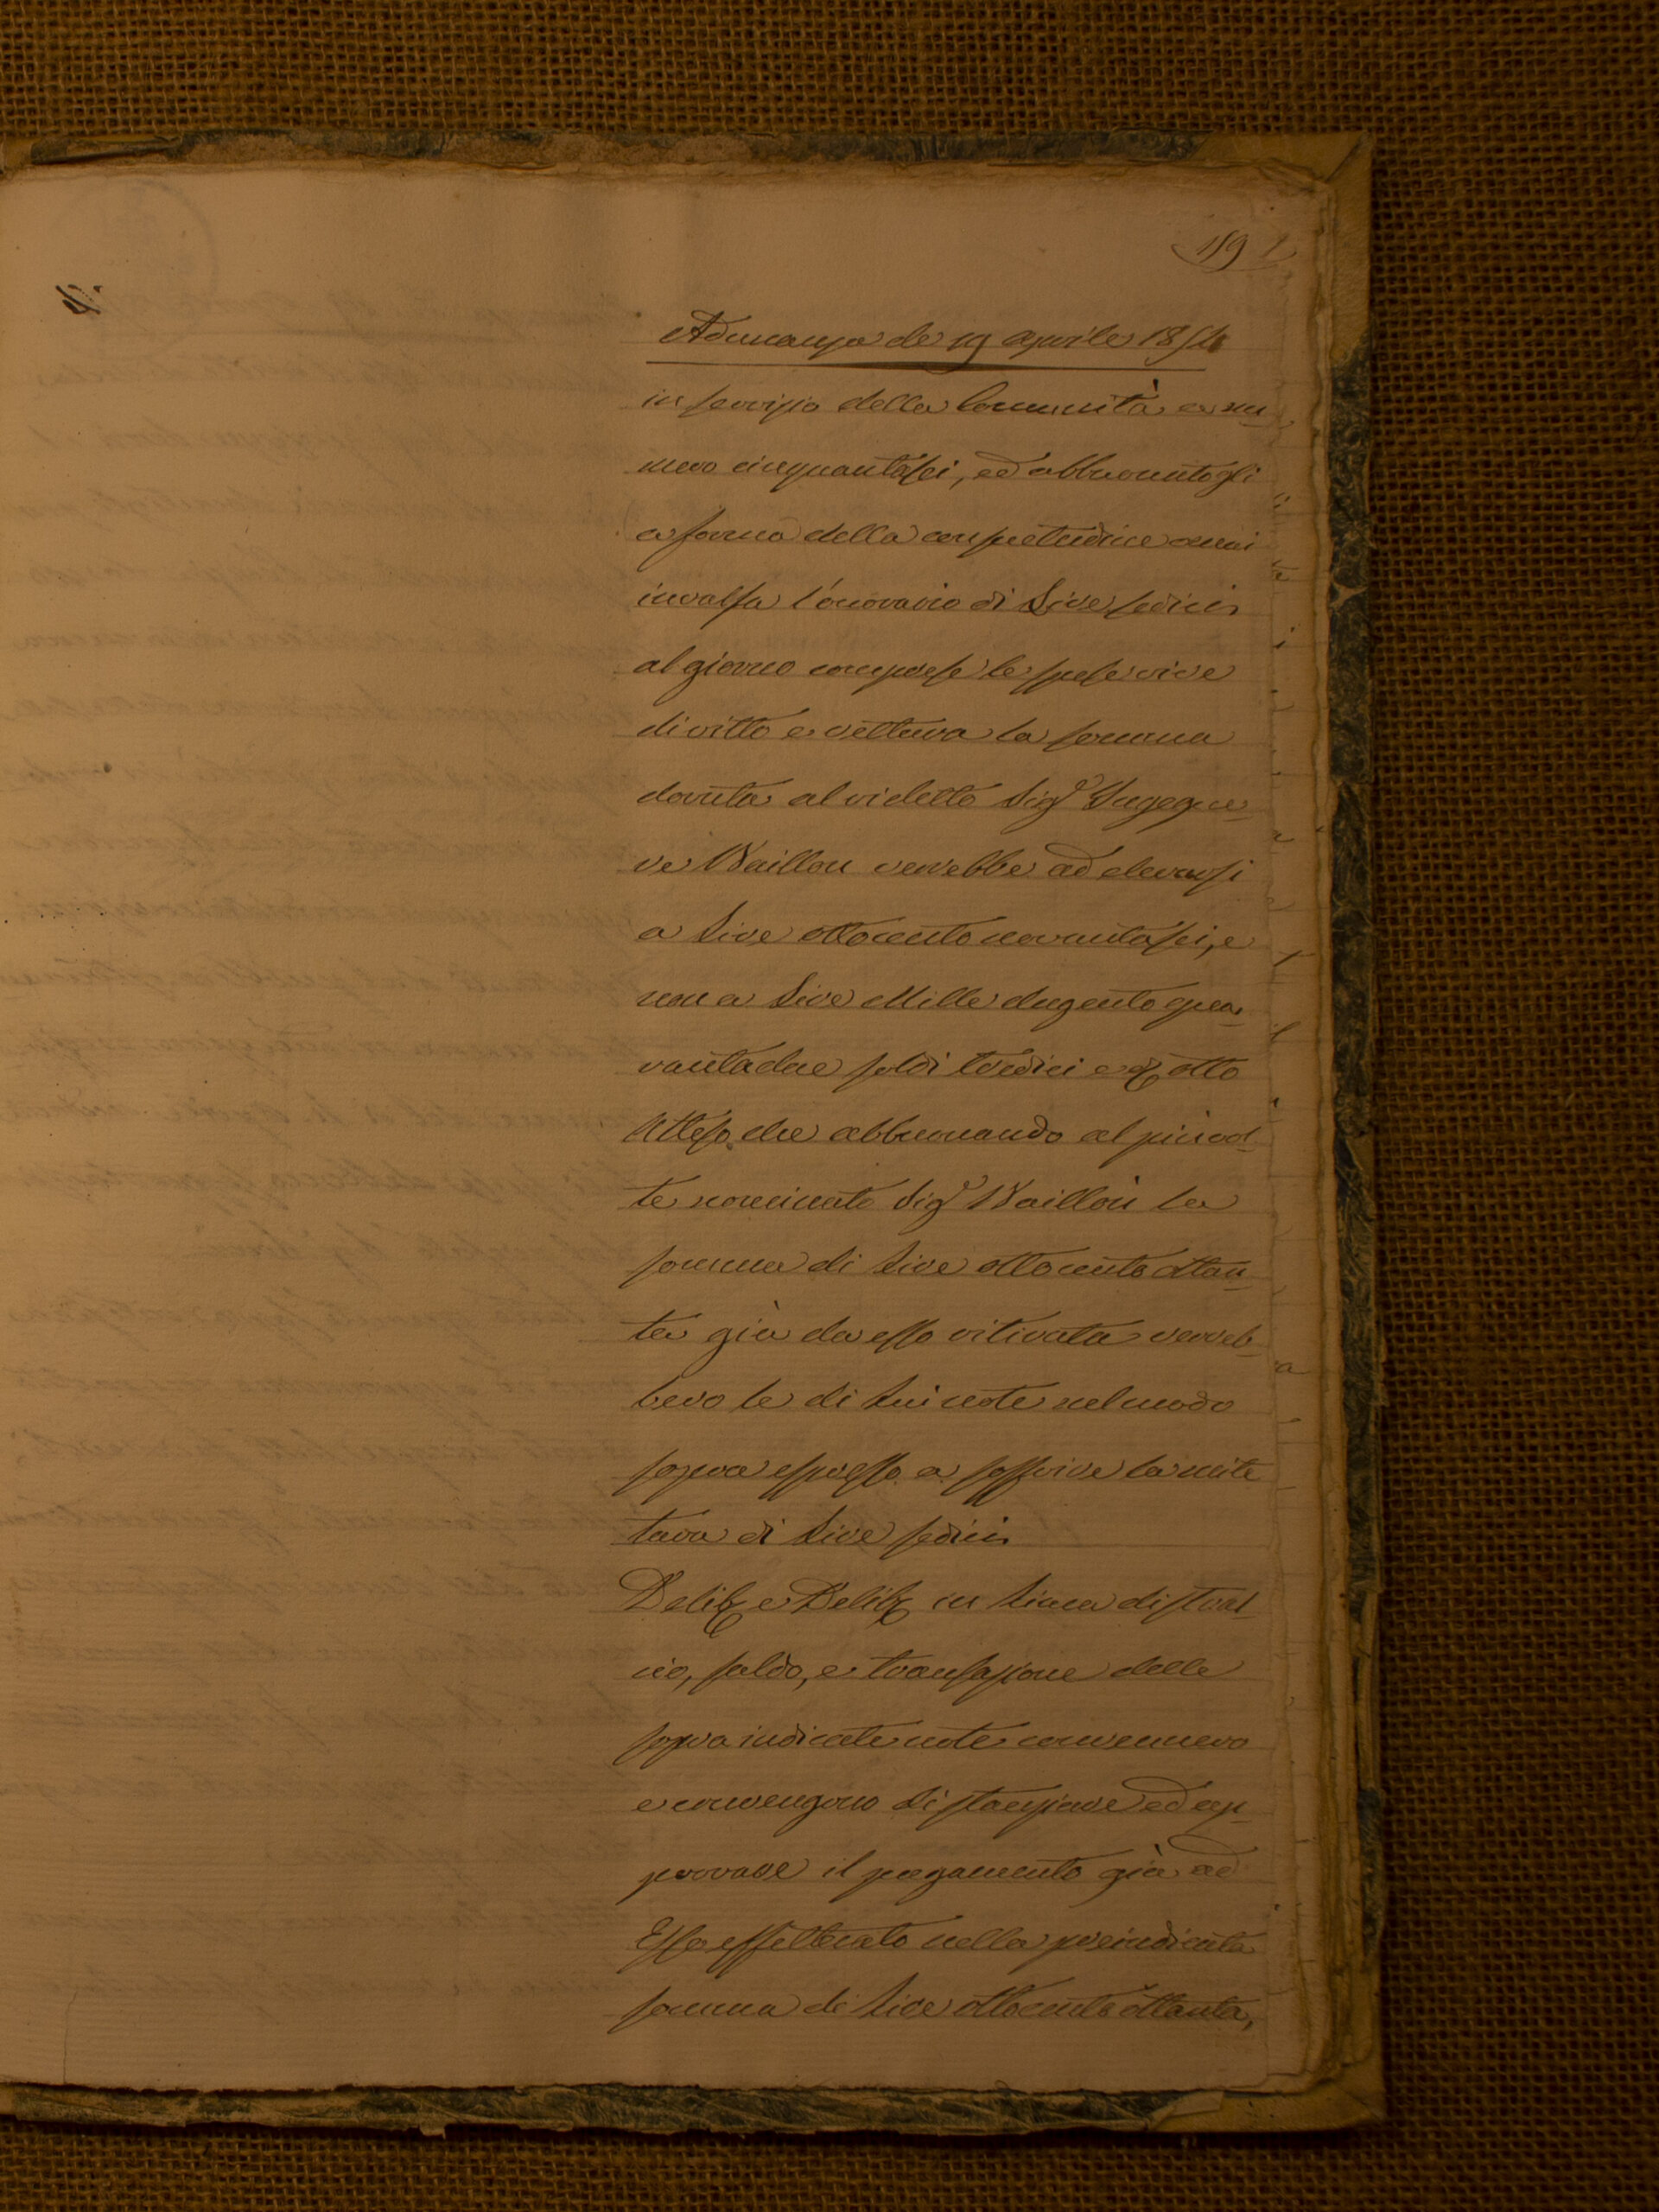 119
Adunanza de 19 Aprile 185
in servizio della Comunità a nu
mero cinquantasei, ed abbuonatogli
a forma della consuetudine omai
invalsa l'onorario di Lire sedici
al giorno comprese le spese vive
di vitto e vettura la somma
dovuta al videtto Sig.r Ingegne
re Waillon verrebbe ad elevarsi
a Lire ottocentonovantasei, e
non a Lire Mille dugento qua
rantadue soldi tredici e d. otto
Atteso che abbuonando al più vol
te nominato Sig.r Waillon la
somma di Lire ottocento ottan
ta già da esso ritirata verreb
bero le di lui note nel modo
sopra espresso a soffrire la mite
tara di Lire sedici
Delib. e Delib. in linea di stral
cio, saldo, e transazione delle
sopra indicate note convennero
e convengono di stanziare ed ap
provare il pagamento già ad
Esso effettuato nella preindicata
somma di Lire ottocento ottanta,